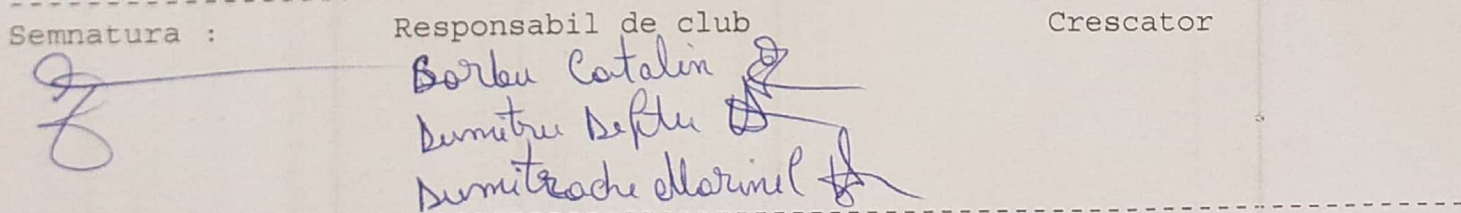 Semnatura : Responsabil de club Crescator
Barbu Catalin
Dumitru
Dumitrache Marinel